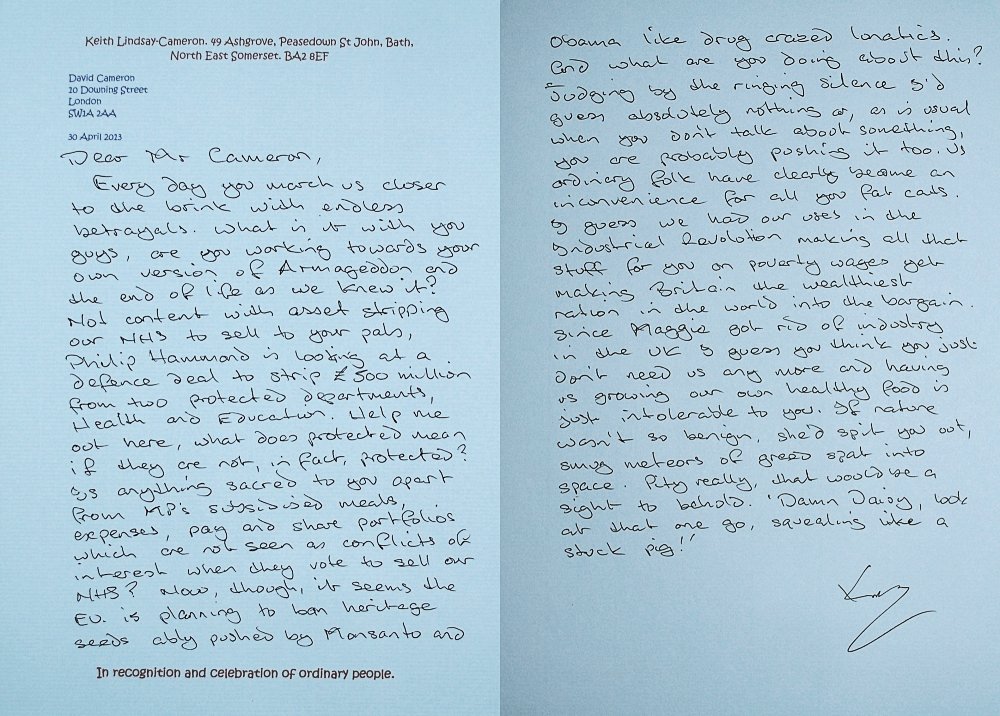 Keith Lindsay-Cameron. 49 Ashgrove, Peasedown St John, Bath,
North East Somerset. BA2 8EF
David Cameron
10 Downing Street
London
SW1A 2AA
30 April 2013
Dear Mr Cameron,
Every day you march us closer
to the brink with endless
betrayals. What is it with you
guys, are you working towards your
own version of Armageddon and
the end of life as we knew it?
Not content with asset stripping
our NHS to sell to your pals,
Philip Hammond is looking at a
defence deal to strip £500 million
from two protected departments,
Health and Education. Help me
out here, what does protected mean
if they are not, in fact, protected?
Is anything sacred to you apart
from MP's subsidised meals,
expenses, pay and share portfolios
which are not seen as conflicts of
interest when they vote to sell our
NHS? Now, though, it seems the
EU. is planning to ban heritage
seeds ably pushed by Monsanto and
In recognition and celebration of ordinary people.
Obama like drug crazed lunatics.
And what are you doing about this?
Judging by the ringing silence I'd
guess absolutely nothing or, as is usual
when you don't talk about something,
you are probably pushing it too. Us
ordinary folk have clearly become an
inconvenience for all you fat cats.
I guess we had our uses in the
Industrial Revolution making all that
stuff for you on poverty wages yet
making Britain the wealthiest
nation in the world into the bargain.
Since Maggie got rid of industry
in the UK I guess you think you just
don't need us any more and having
us growing our own healthy food is
just intolerable to you. If nature
wasn't so benign, she'd spit you out,
smug meteors of greed spat into
space. Pity really, that would be a
sight to behold. 'Damn Daisy, look
at that one go, squealing like a
stuck pig!'